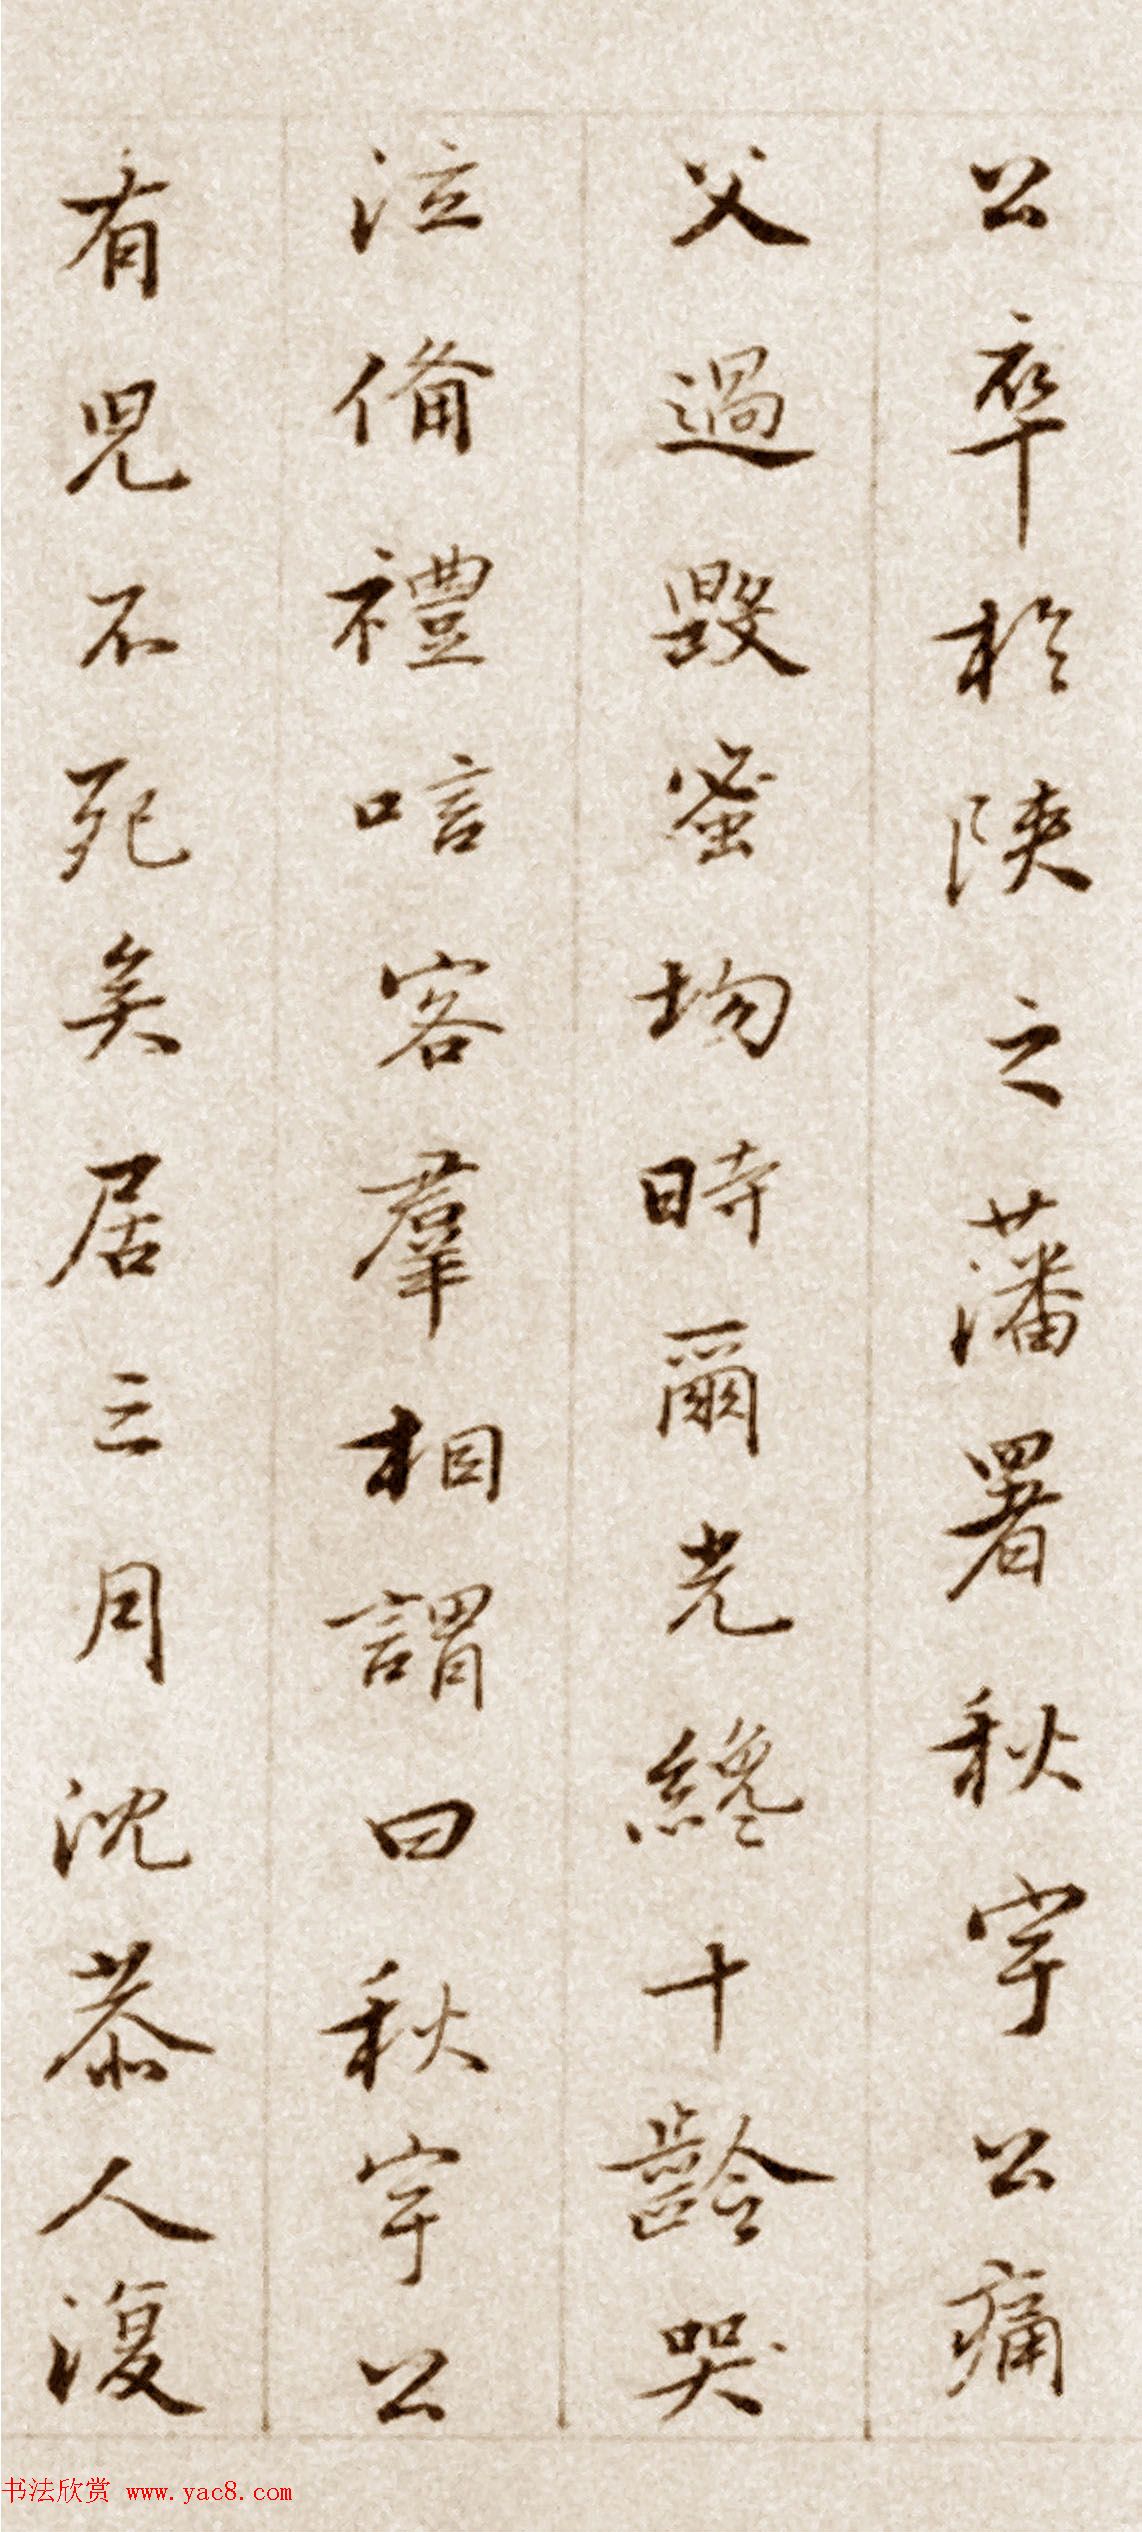 公卒於陝之藩署秋宇公痛
父過毀蜜均時爾光纔十齡哭
泣備禮唁客羣相謂曰秋宇公
有兒不死矣居三月沈恭人復
书法欣赏 www.yac8.com